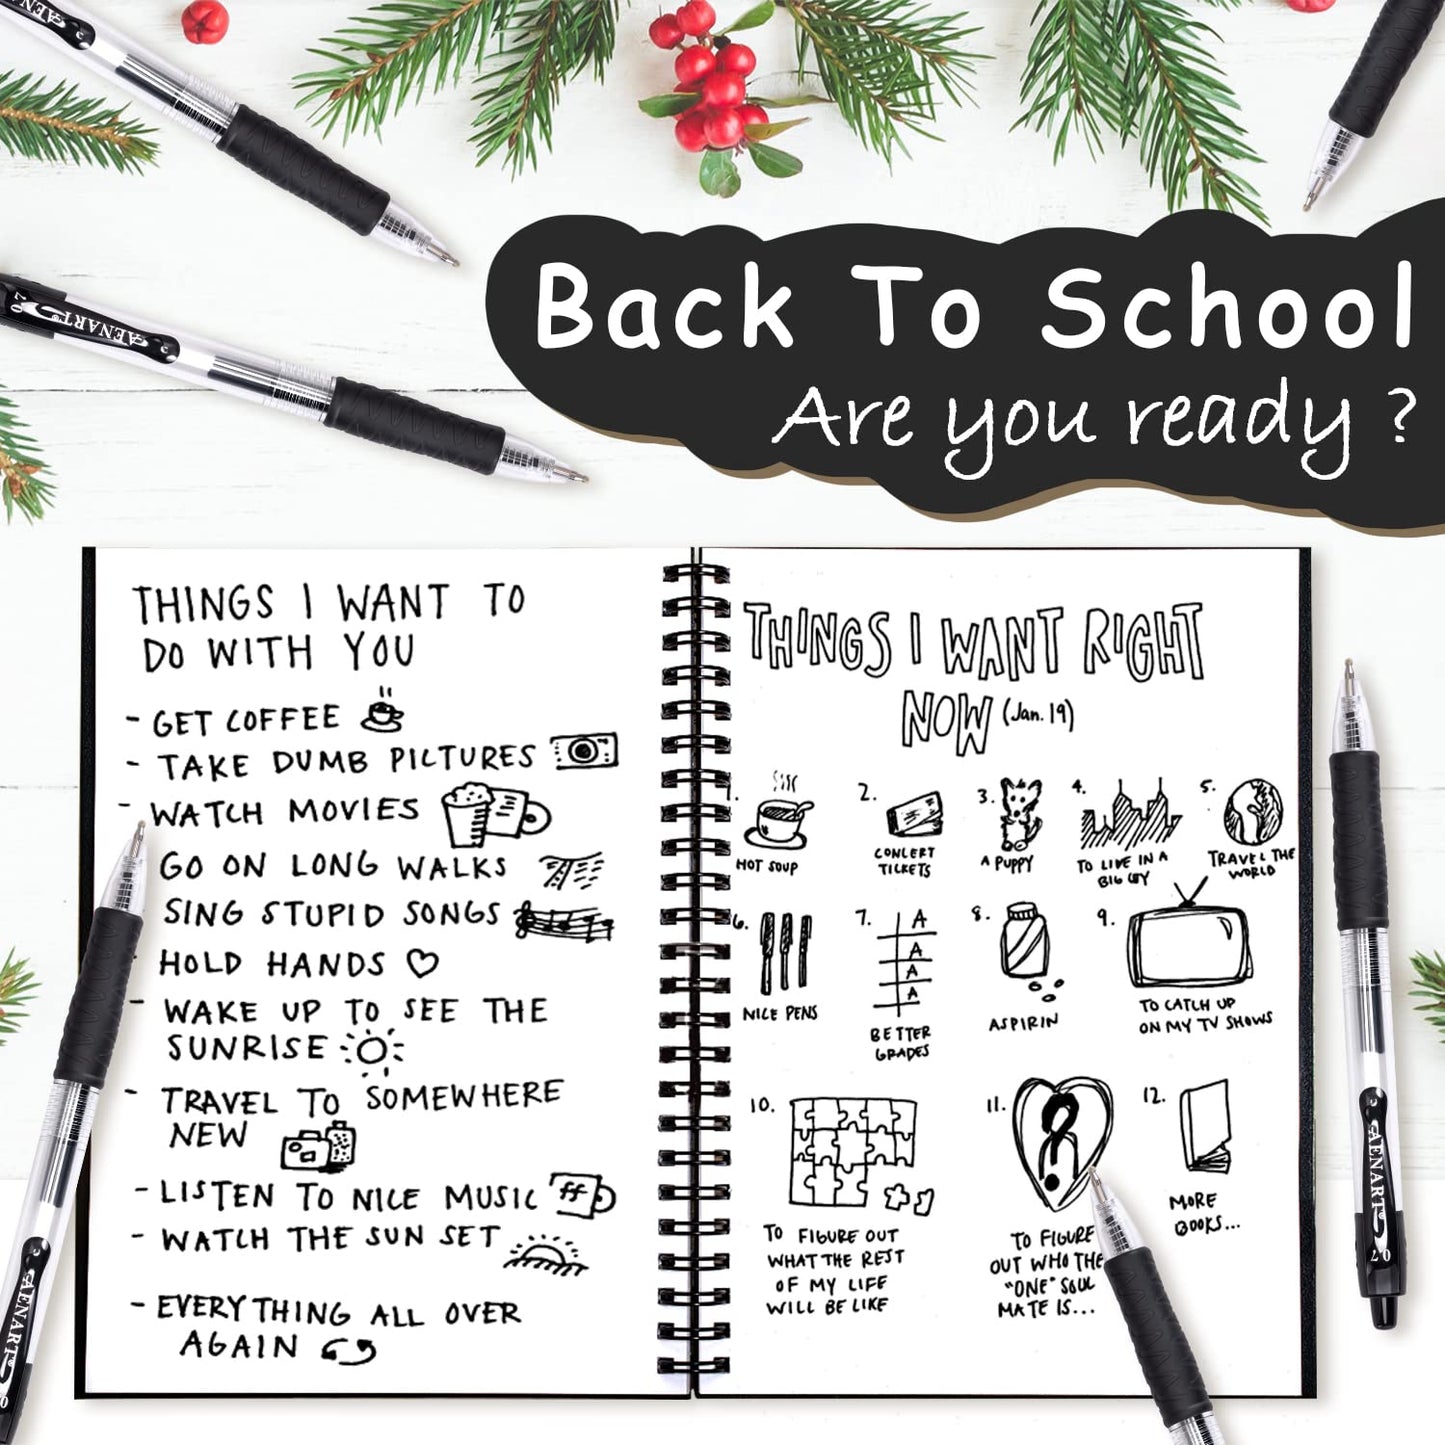 Back To School
Are you ready ?
AENART
20
AENART
THINGS I WANT TO
DO WITH YOU
- GET COFFEE
- TAKE DUMB PICTURES
- WATCH MOVIES
GO ON LONG WALKS
SING STUPID SONGS
HOLD HANDS
- WAKE UP TO SEE THE
SUNRISE
- TRAVEL TO SOMEWHERE
NEW
- LISTEN TO NICE MUSIC
- WATCH THE SUN SET
- EVERYTHING ALL OVER
AGAIN
THINGS I WANT RIGHT
NOW (Jan. 19)
HOT SOUP
2.
CONCERT
TICKETS
3.
A PUPPY
4.
TO LIVE IN A
BIG CITY
5.
TRAVEL THE
WORLD
6.
NICE PENS
7.
A
A
A
A
BETTER
GRADES
8.
ASPIRIN
9.
TO CATCH UP
ON MY TV SHOWS
10.
TO FIGURE OUT
WHAT THE REST
OF MY LIFE
WILL BE LIKE
11.
TO FIGURE
OUT WHO THE
"ONE" SOUL
MATE IS...
12.
MORE
BOOKS...
AENART
AENART
20